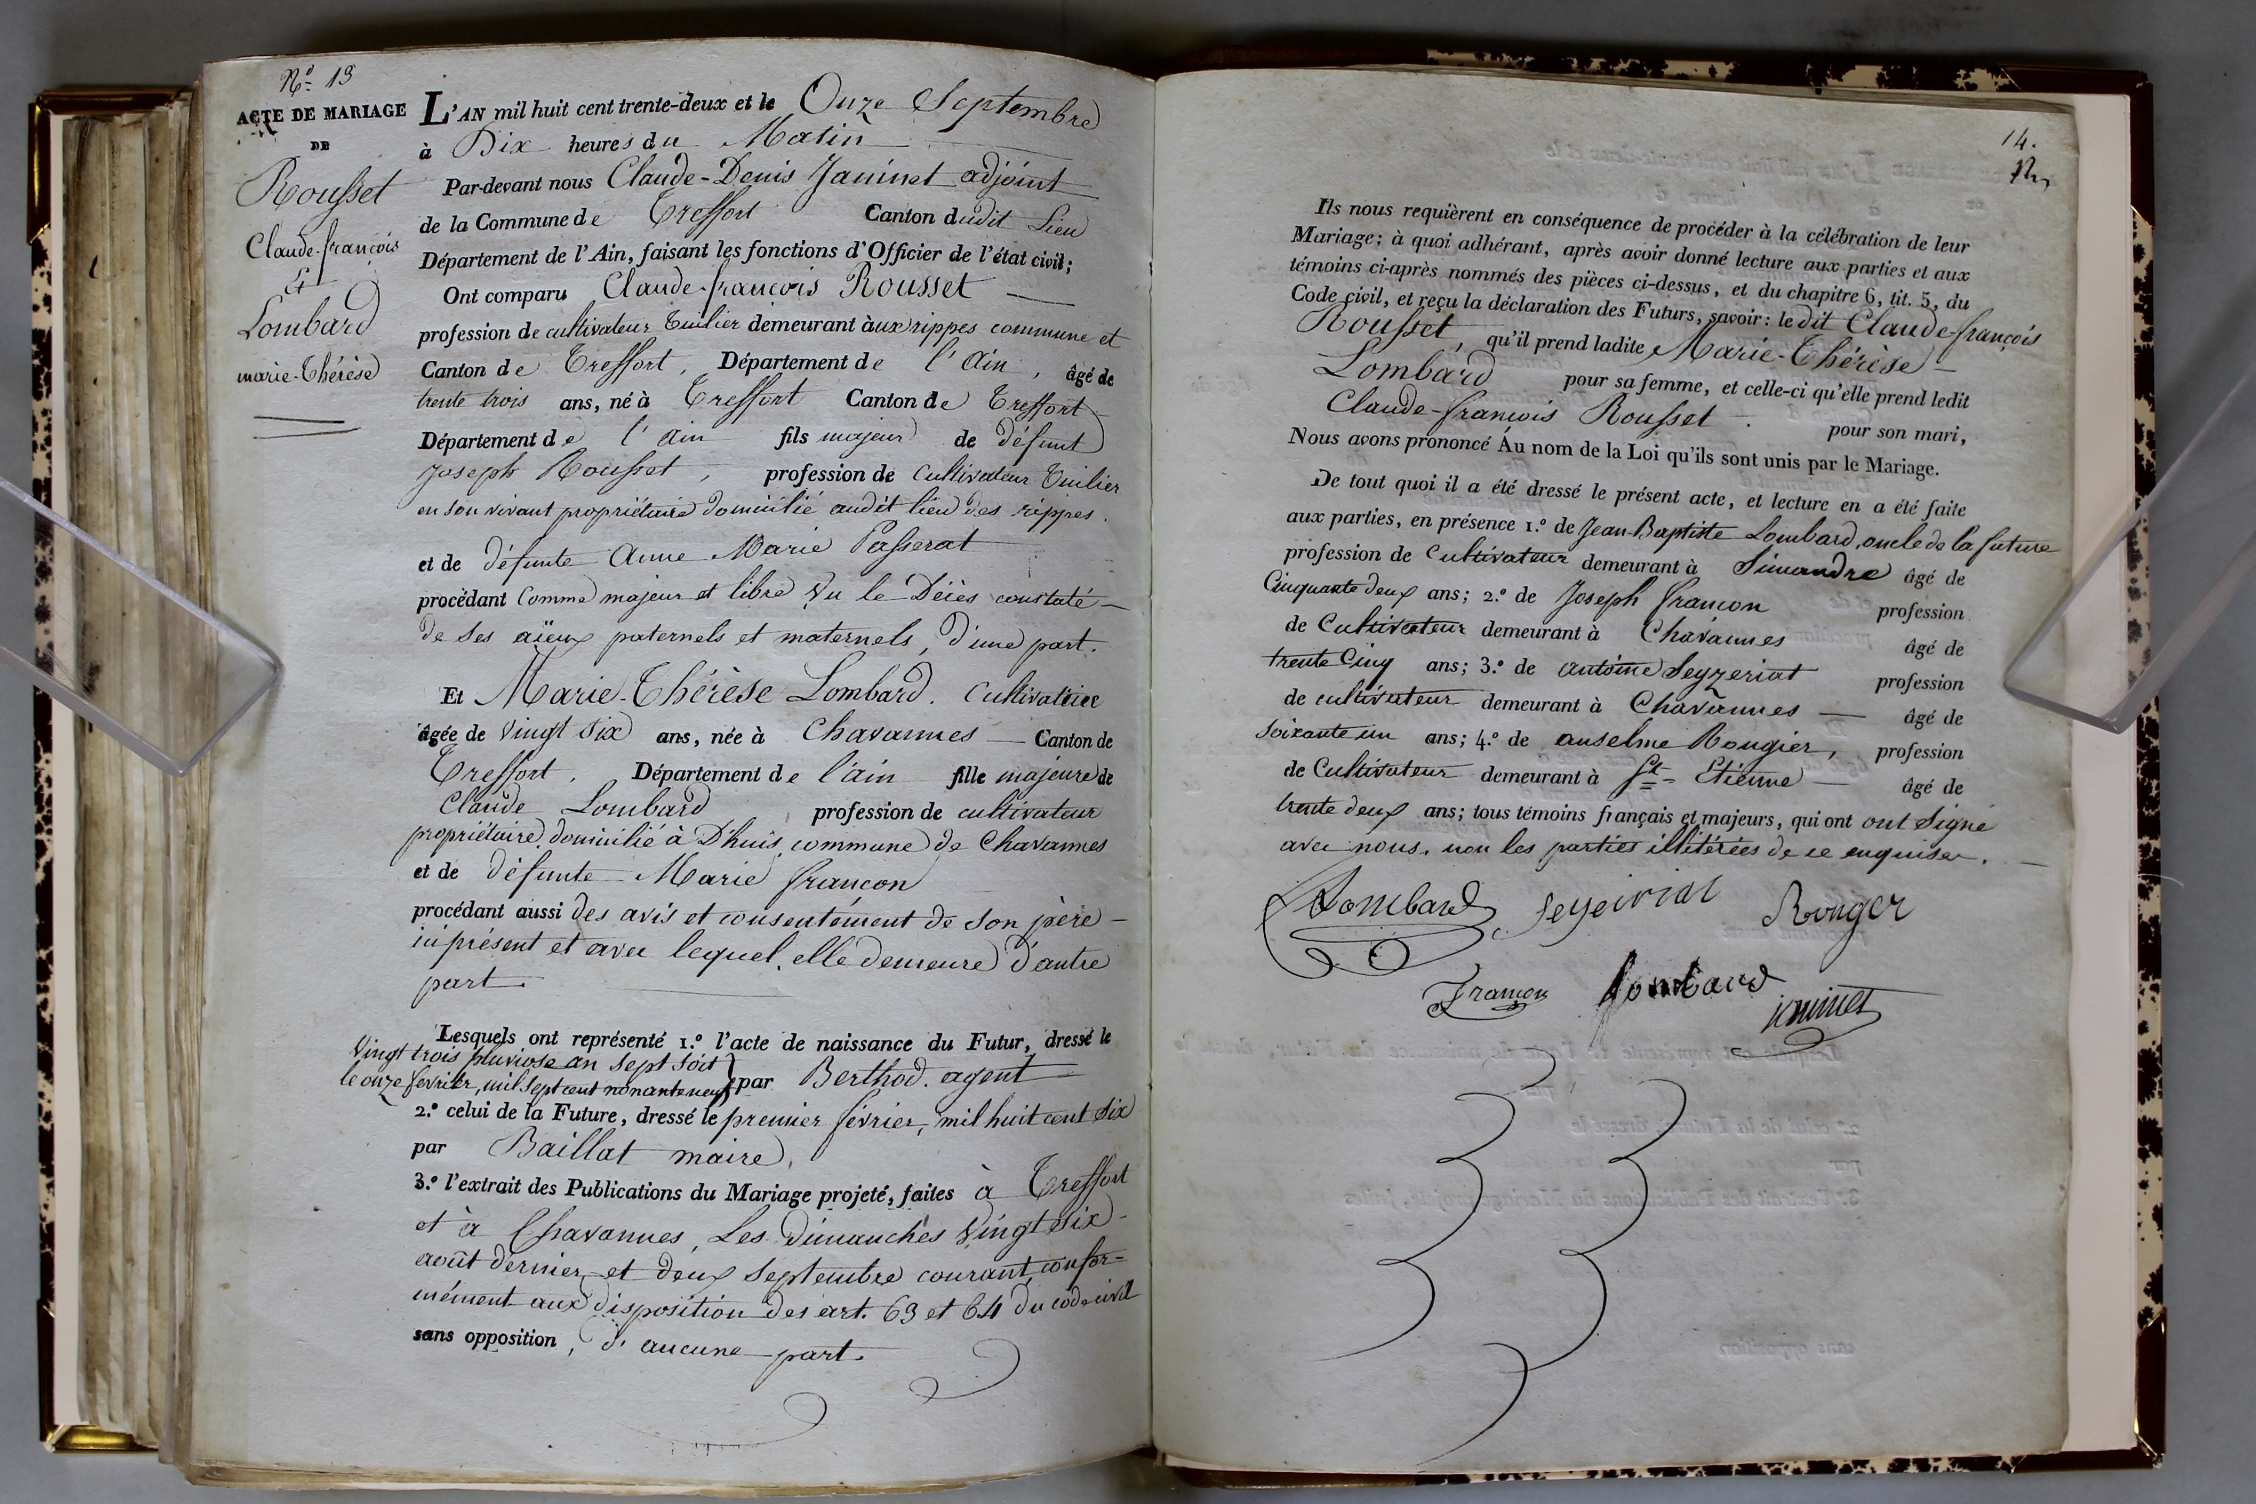 N.º 13
ACTE DE MARIAGE
DE
Rousset
Claude-françois
Et
Lombard
marie-Thérèse
L'AN mil huit cent trente-deux et le Onze Septembre
à Dix heures du Matin
Par-devant nous Claude-Denis Janinet adjoint
de la Commune de Treffort Canton dudit Lieu
Département de l'Ain, faisant les fonctions d'Officier de l'état civil;
Ont comparu Claude-françois Rousset
profession de cultivateur Tuilier demeurant àux rippes commune et
Canton de Treffort, Département de l'Ain, âgé de
trente trois ans, né à Treffort Canton de Treffort
Département de l'ain fils majeur de défunt
Joseph Rousset, profession de Cultivateur Tuilier
en son vivant propriétaire domicilié audit lieu des rippes.
et de défunte Anne Marie Passerat
procédant comme majeur et libre Vu le Décès constaté
de ses aïeux paternels et maternels, d'une part.
Et Marie-Thérèse Lombard. Cultivatrice
âgée de vingt six ans, née à Chavannes Canton de
Treffort. Département de l'ain fille majeure de
Claude Lombard profession de cultivateur
propriétaire domicilié à Dhuis commune de Chavannes
et de défunte Marie françon
procédant aussi des avis et consentement de son père
ici présent et avec lequel elle demeure d'autre
part.
Lesquels ont représenté 1.º l'acte de naissance du Futur, dressé le
Vingt trois pluviose an sept soit
le onze fevrier, mil sept cent nonante neuf par Berthod. agent
2.º celui de la Future, dressé le premier février, mil huit cent six
par Baillat maire,
3.º l'extrait des Publications du Mariage projeté, faites à Treffort
et à Chavannes, Les dimanches vingt six
août dernier, et deux Septembre courant, confor-
mément aux disposition des art. 63 et 64 du code civil
sans opposition, d'aucune part.
14.
Ils nous requièrent en conséquence de procéder à la célébration de leur
Mariage; à quoi adhérant, après avoir donné lecture aux parties et aux
témoins ci-après nommés des pièces ci-dessus, et du chapitre 6, tit. 5, du
Code civil, et reçu la déclaration des Futurs, savoir: le dit Claude-françois
Rousset, qu'il prend ladite Marie-Thérèse
Lombard pour sa femme, et celle-ci qu'elle prend ledit
Claude-françois Rousset. pour son mari,
Nous avons prononcé Au nom de la Loi qu'ils sont unis par le Mariage.
De tout quoi il a été dressé le présent acte, et lecture en a été faite
aux parties, en présence 1.º de Jean-Baptiste Lombard, oncle de la future
profession de Cultivateur demeurant à Simandre âgé de
Cinquante deux ans; 2.º de Joseph françon profession
de Cultivateur demeurant à Chavannes âgé de
trente Cinq ans; 3.º de antoine Seyzeriat profession
de cultivateur demeurant à Chavannes âgé de
soixante un ans; 4.º de anselme Rougier, profession
de Cultivateur demeurant à St Etienne âgé de
trente deux ans; tous témoins français et majeurs, qui ont ont Signé
avec nous, non les parties illitérées de ce enquises.
Lombard Rouger
Françon Lombard
janinet